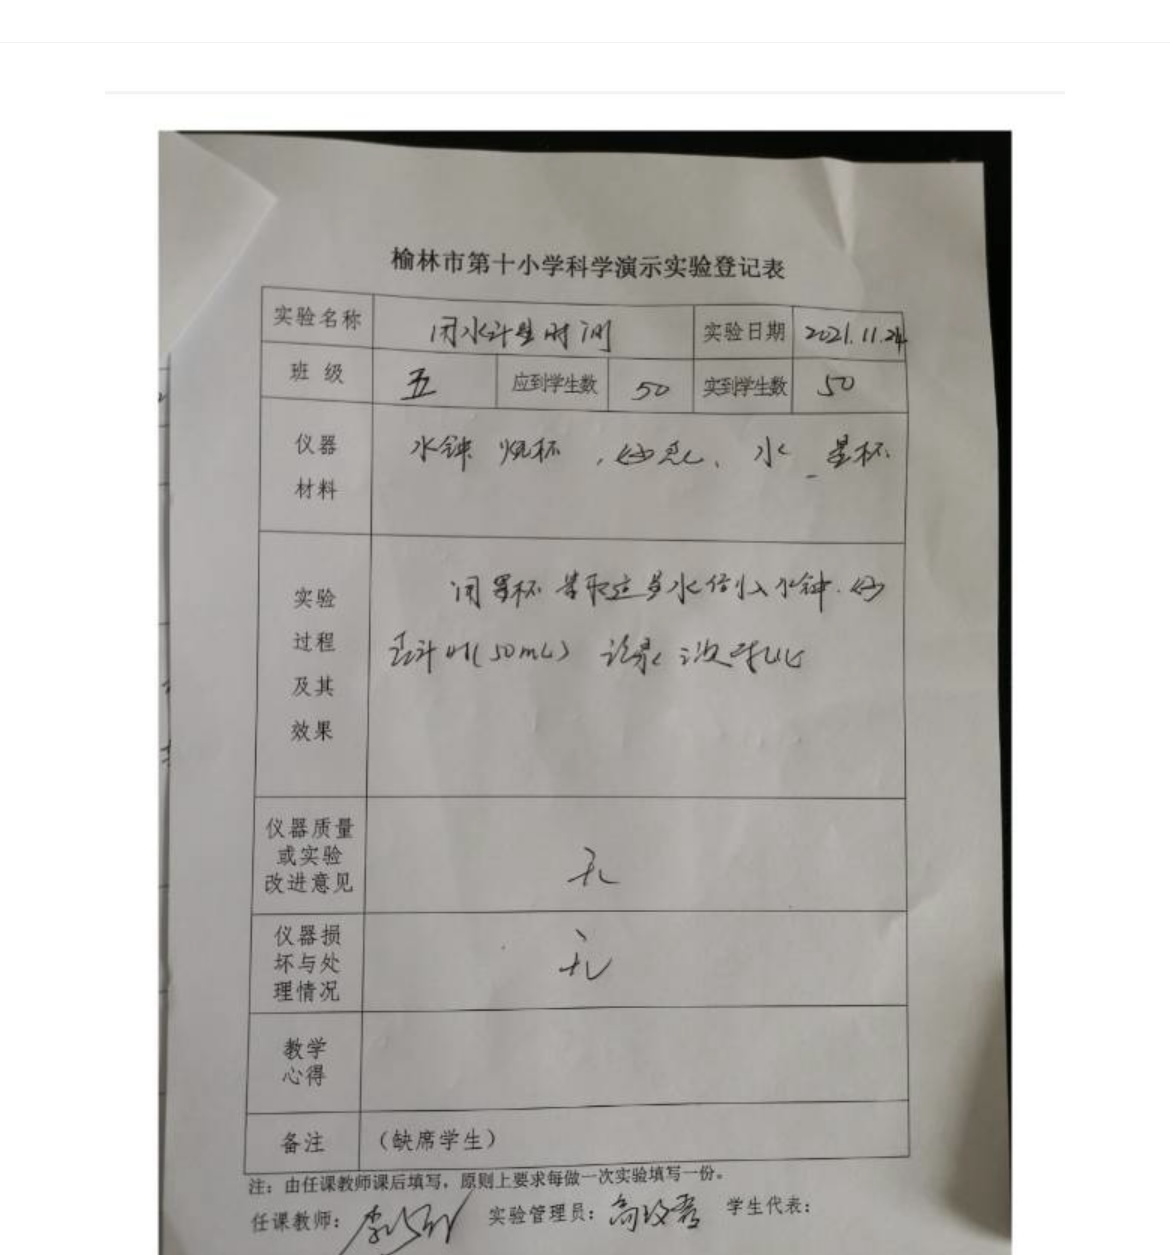 榆林市第十小学科学演示实验登记表
实验名称 用水计量时间 实验日期 2021.11.24
班级 五 应到学生数 50 实到学生数 50
仪器
材料
水钟 烧杯、秒表、水 量杯
实验
过程
及其
效果
用量杯量取 水 水钟.秒
表计时(50mL) 记录 次对比
仪器质量
或实验
改进意见
无
仪器损
坏与处
理情况
无
教学
心得
备注 (缺席学生)
注:由任课教师课后填写,原则上要求每做一次实验填写一份。
任课教师: 实验管理员: 学生代表: